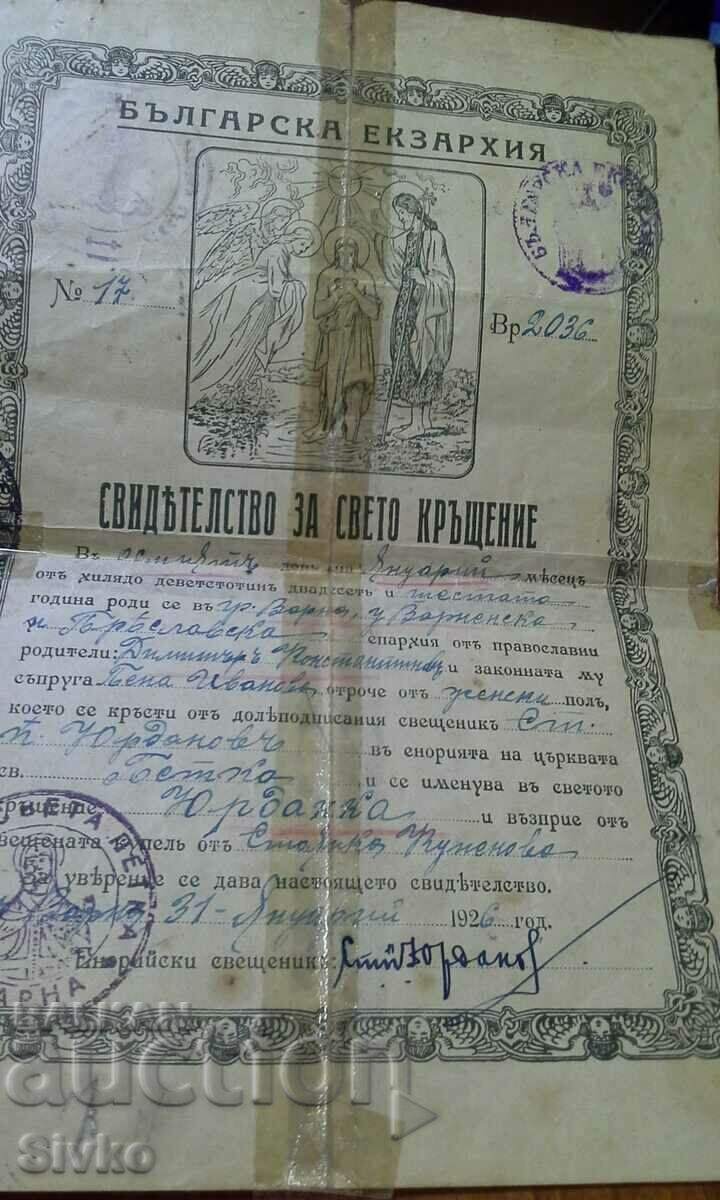 БЪЛГАРСКА ЕКЗАРХИЯ
БЪЛГАРСКА
№ 17
Вр 2036
СВИДѢТЕЛСТВО ЗА СВЕТО КРЪЩЕНИЕ
Въ осмиятъ день на Януарий мѣсецъ
отъ хилядо деветстотинъ двадесеть и шестата
година роди се въ гр. Варна, у Варненска
и Прѣславска епархия отъ православни
родители: Димитъръ Константиновъ и законната му
съпруга Пена Иванова отроче отъ женски полъ,
което се кръсти отъ долѣподписания свещеникъ Ст.
п. Юрдановъ въ енорията на църквата
св. Петка и се именува въ светото
кръщение Юрданка и възприе отъ
свещената купель отъ Стоянка
За увѣрение се дава настоящето свидѣтелство.
Варна 31 - Януарий 1926 год.
Енорийски свещеникъ: Ст. п. Юрдановъ
СВЕТА ПЕТКА
ВАРНА
auction
Sivko